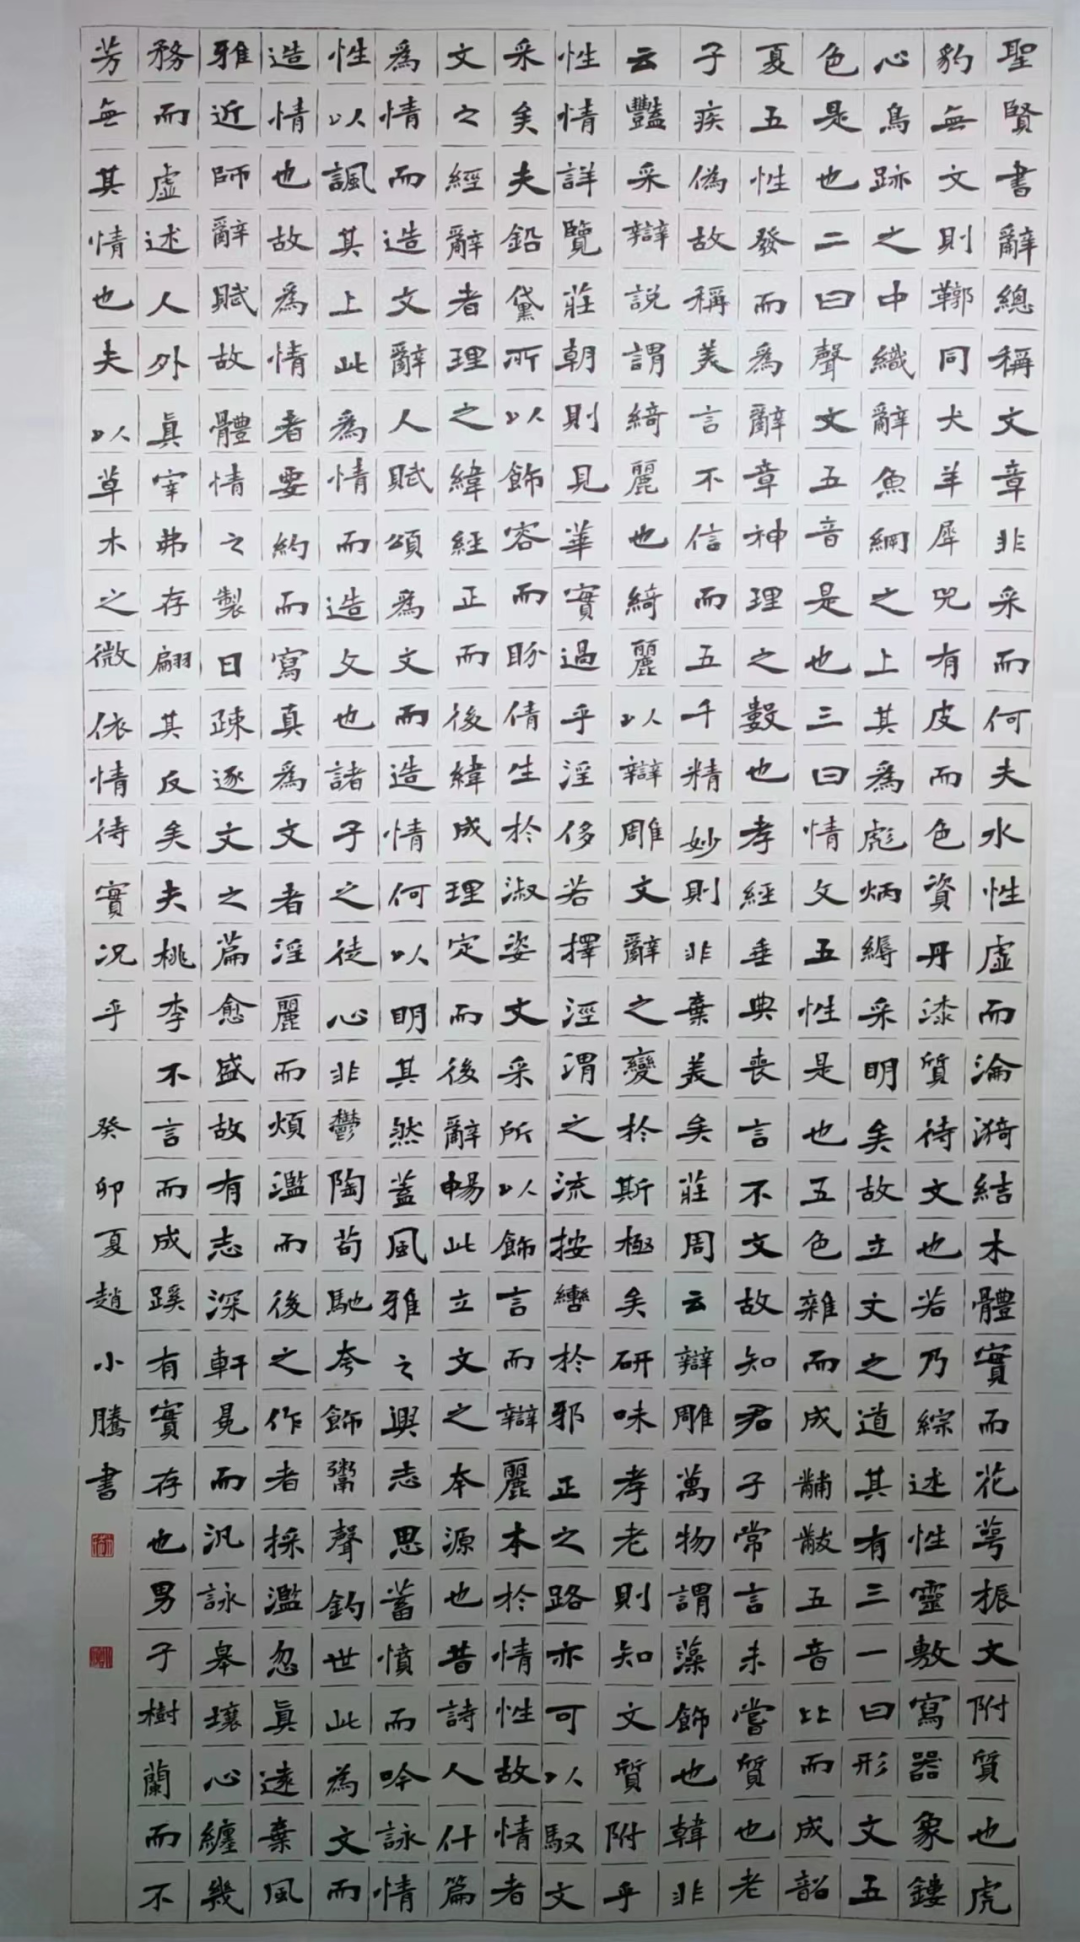 聖賢書辭總稱文章非采而何夫水性虛而淪漪結木體實而花萼振文附質也虎
豹無文則鞹同犬羊犀兕有皮而色資丹漆質待文也若乃綜述性靈敷寫器象鏤
心鳥跡之中織辭魚網之上其爲彪炳縟采明矣故立文之道其有三一曰形文五
色是也二曰聲文五音是也三曰情文五性是也五色雜而成黼黻五音比而成韶
夏五性發而爲辭章神理之數也孝經垂典喪言不文故知君子常言未嘗質也老
子疾偽故稱美言不信而五千精妙則非棄美矣莊周云辯雕萬物謂藻飾也韓非
云豔采辯說謂綺麗也綺麗以辯雕文辭之變於斯極矣研味孝老則知文質附乎
性情詳覽莊朝則見華實過乎淫侈若擇涇渭之流按轡於邪正之路亦可以馭文
采矣夫鉛黛所以飾容而盼倩生於淑姿文采所以飾言而辯麗本於情性故情者
文之經辭者理之緯經正而後緯成理定而後辭暢此立文之本源也昔詩人什篇
爲情而造文辭人賦頌爲文而造情何以明其然蓋風雅之興志思蓄憤而吟詠情
性以諷其上此爲情而造文也諸子之徒心非鬱陶苟馳夸飾鬻聲釣世此為文而
造情也故爲情者要約而寫真爲文者淫麗而煩濫而後之作者採濫忽眞遠棄風
雅近師辭賦故體情之製日疎逐文之篇愈盛故有志深軒冕而汎詠皋壤心纏幾
務而虛述人外眞宰弗存翩其反矣夫桃李不言而成蹊有實存也男子樹蘭而不
芳無其情也夫以草木之微依情待實況乎 癸卯夏趙小騰書